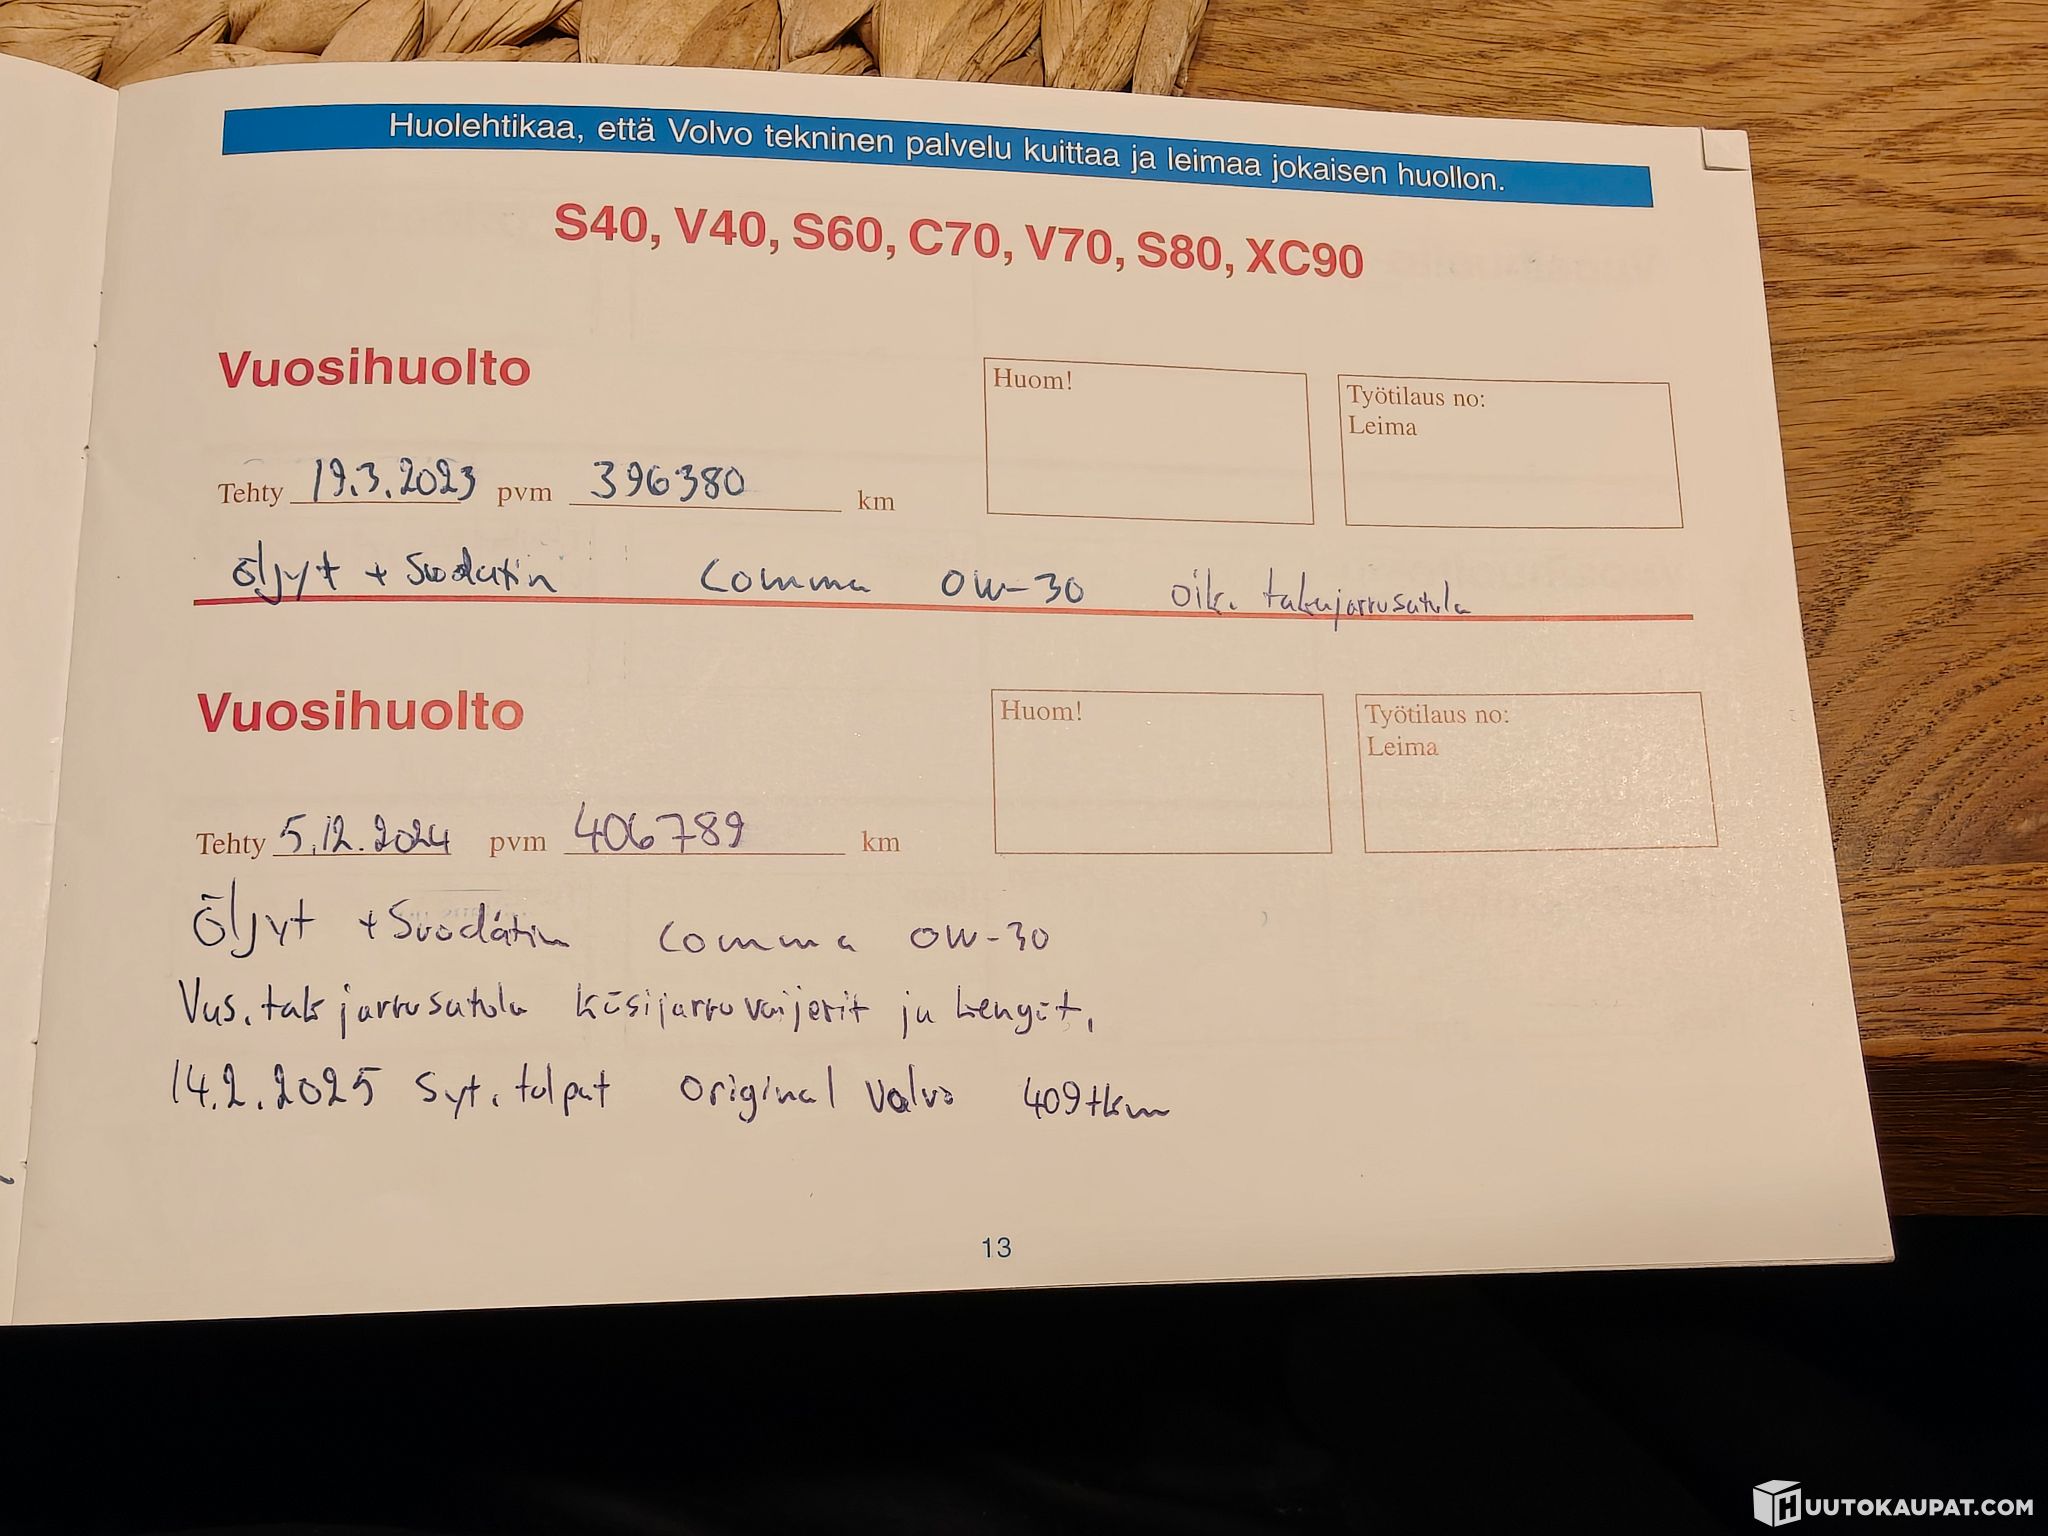 Huolehtikaa, että Volvo tekninen palvelu kuittaa ja leimaa jokaisen huollon.
S40, V40, S60, C70, V70, S80, XC90
Vuosihuolto
Huom!
Työtilaus no:
Leima
Tehty 19.3.2023 pvm 396380 km
Öljyt + Suodatin Comma 0W-30 oik. takajarrusatula
Vuosihuolto
Huom!
Työtilaus no:
Leima
Tehty 5.12.2024 pvm 406789 km
Öljyt + Suodatin Comma 0W-30
Vas. tak jarrusatula käsijarruvaijerit ja kengät.
14.2.2025 Syt. tulpat Original Volvo 409tkm
13
HUUTOKAUPAT.COM